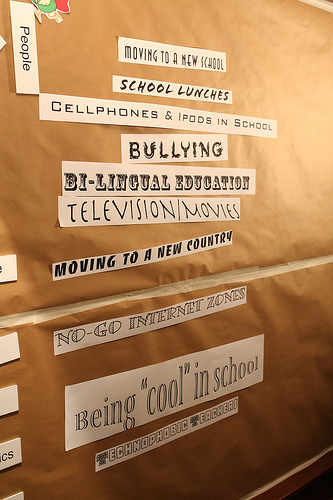 People
MOVING TO A NEW SCHOOL
SCHOOL LUNCHES
CELLPHONES & IPODS IN SCHOOL
BULLYING
BI-LINGUAL EDUCATION
TELEVISION/MOVIES
MOVING TO A NEW COUNTRY
NO-GO INTERNET ZONES
Being "cool" in school
TECHNOPHOBIC TEACHERS